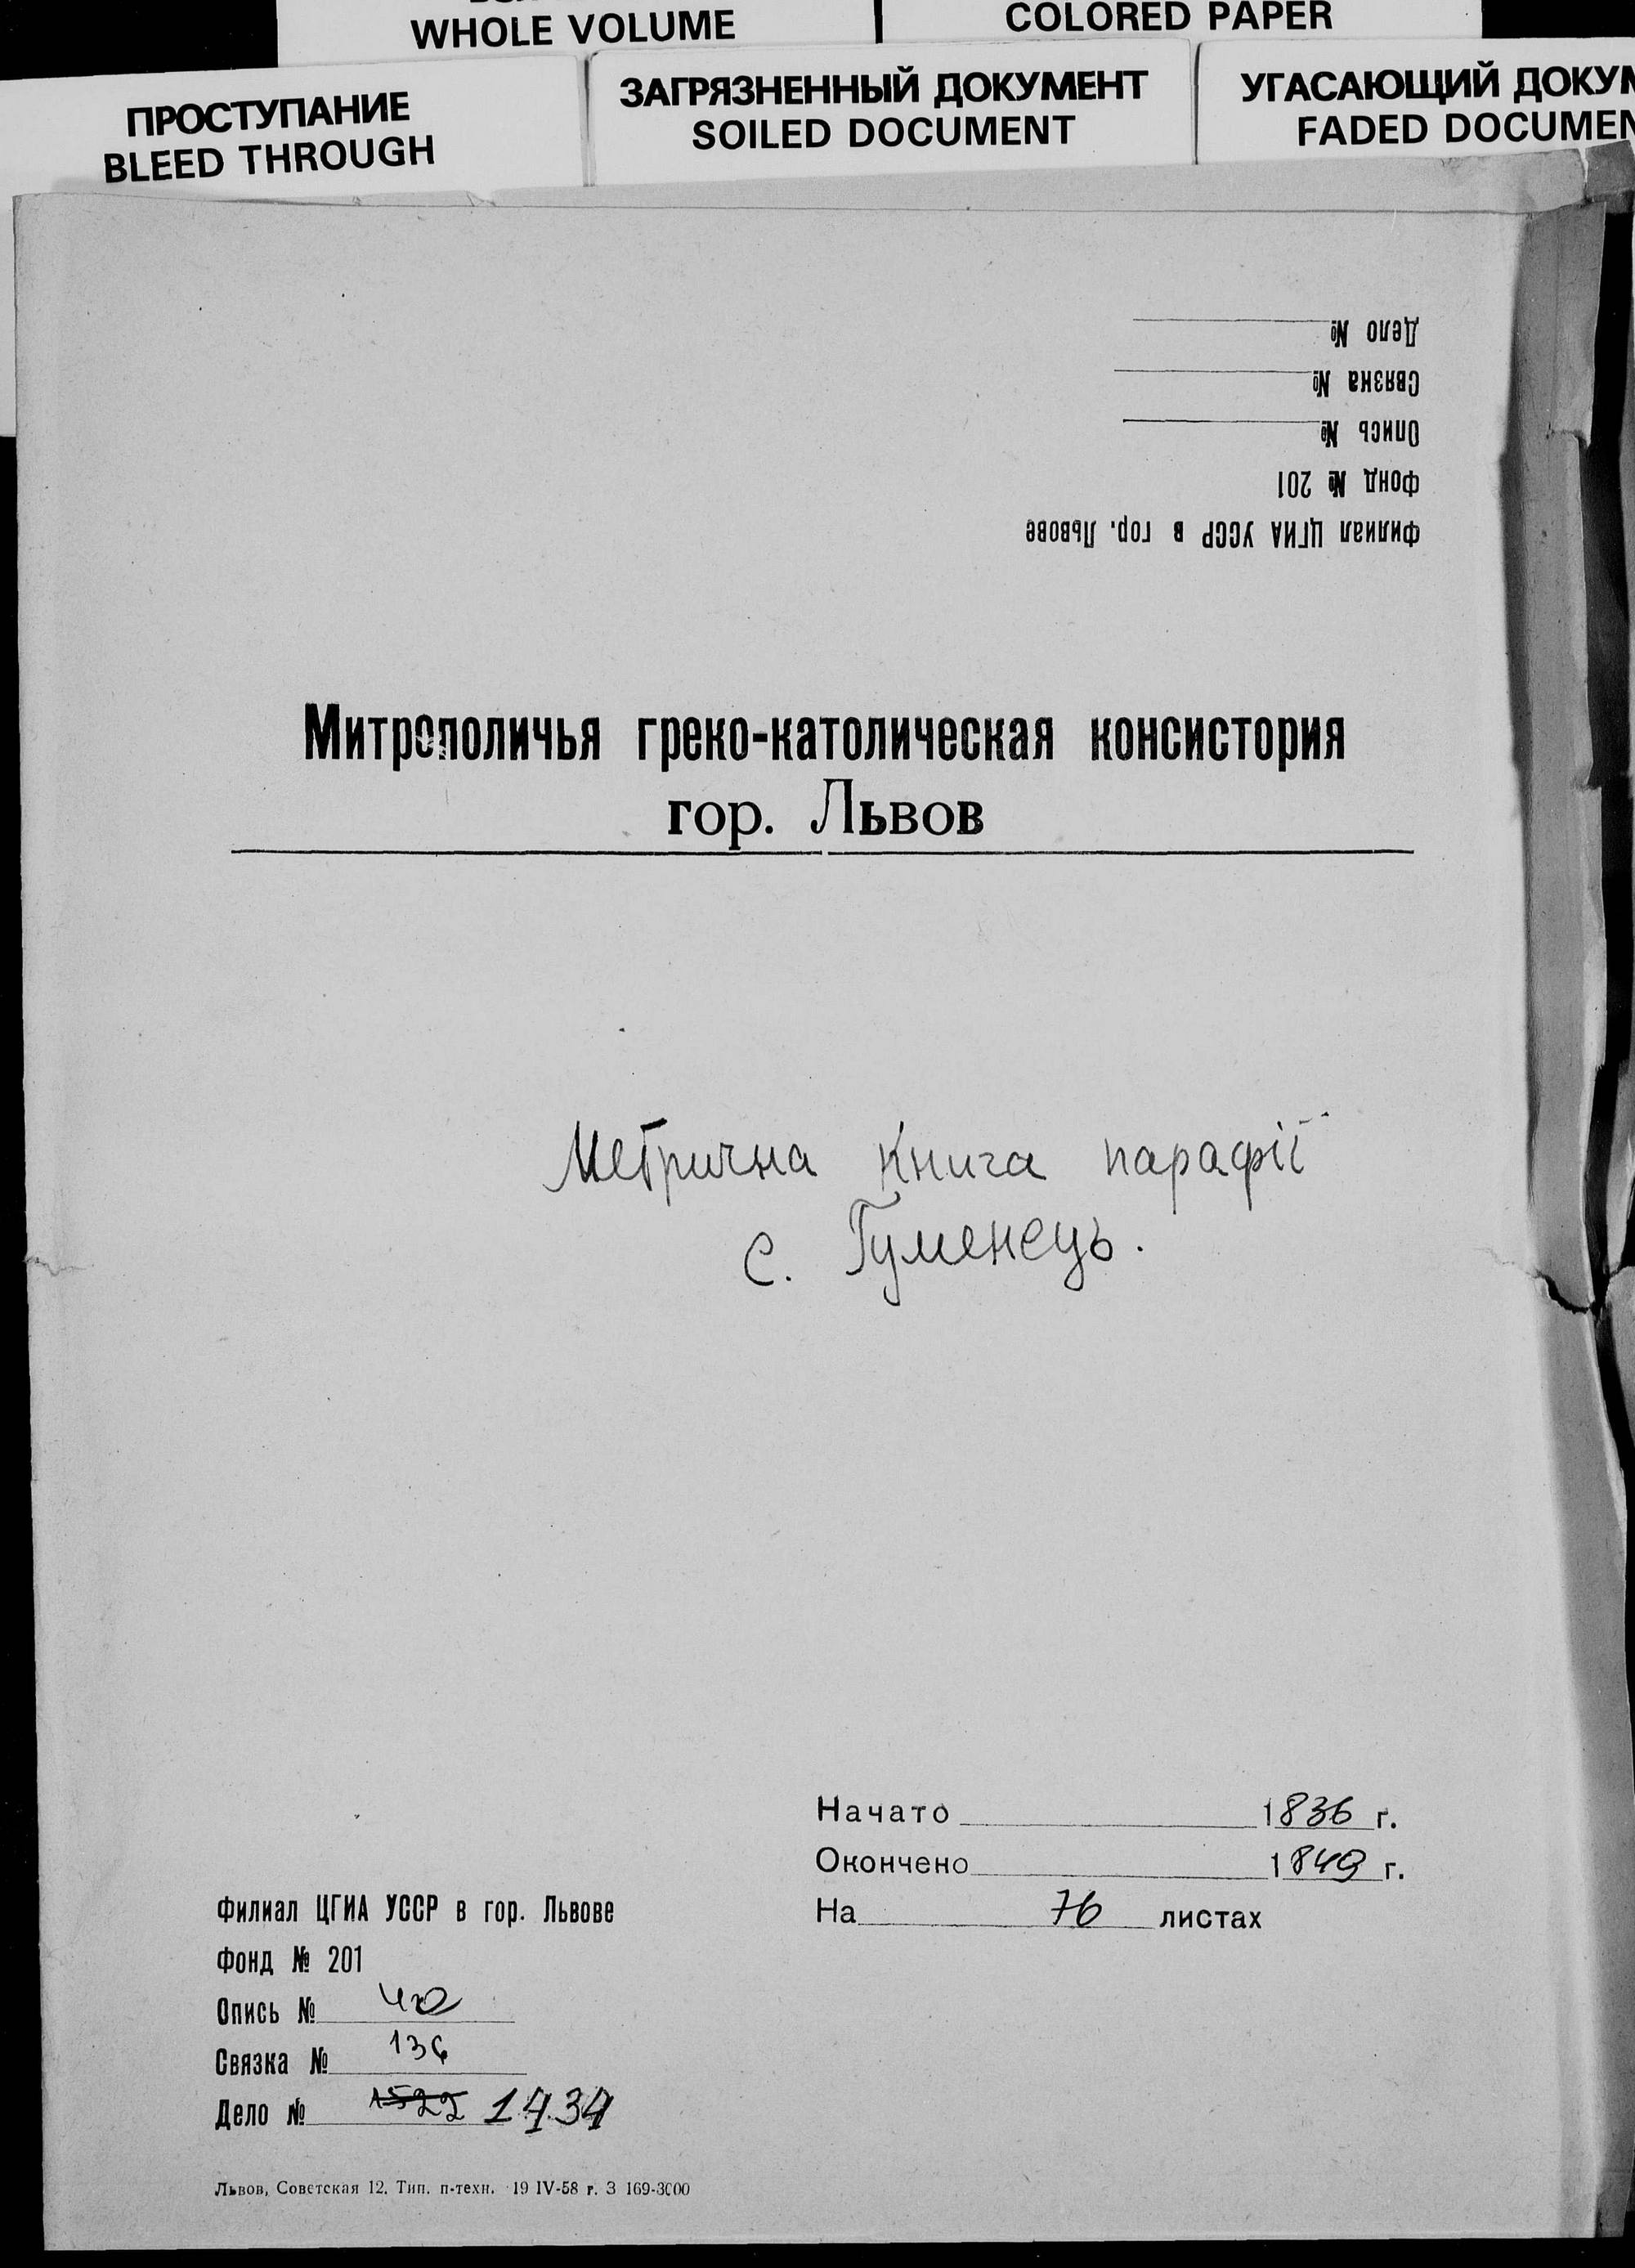 WHOLE VOLUME
COLORED PAPER
ПРОСТУПАНИЕ
BLEED THROUGH
ЗАГРЯЗНЕННЫЙ ДОКУМЕНТ
SOILED DOCUMENT
УГАСАЮЩИЙ ДОКУМ
FADED DOCUMEN
Филиал ЦГИА УССР в гор. Львове
Фонд № 201
Опись №
Связка №
Дело №
Митрополичья греко-католическая консистория
гор. Львов
Метрична книга парафії
с. Гуменець.
Начато 1836 г.
Окончено 1849 г.
На 76 листах
Филиал ЦГИА УССР в гор. Львове
Фонд № 201
Опись № 4а
Связка № 136
Дело № 1522 1434
Львов, Советская 12. Тип. п-техн. 19 IV-58 г. З 169-3000